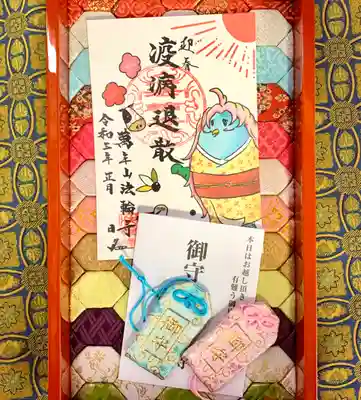 迎春
疫病退散
令和三年 正月
萬年山法輪寺
御守
本日はお越し頂き
有難う御
御守
御守